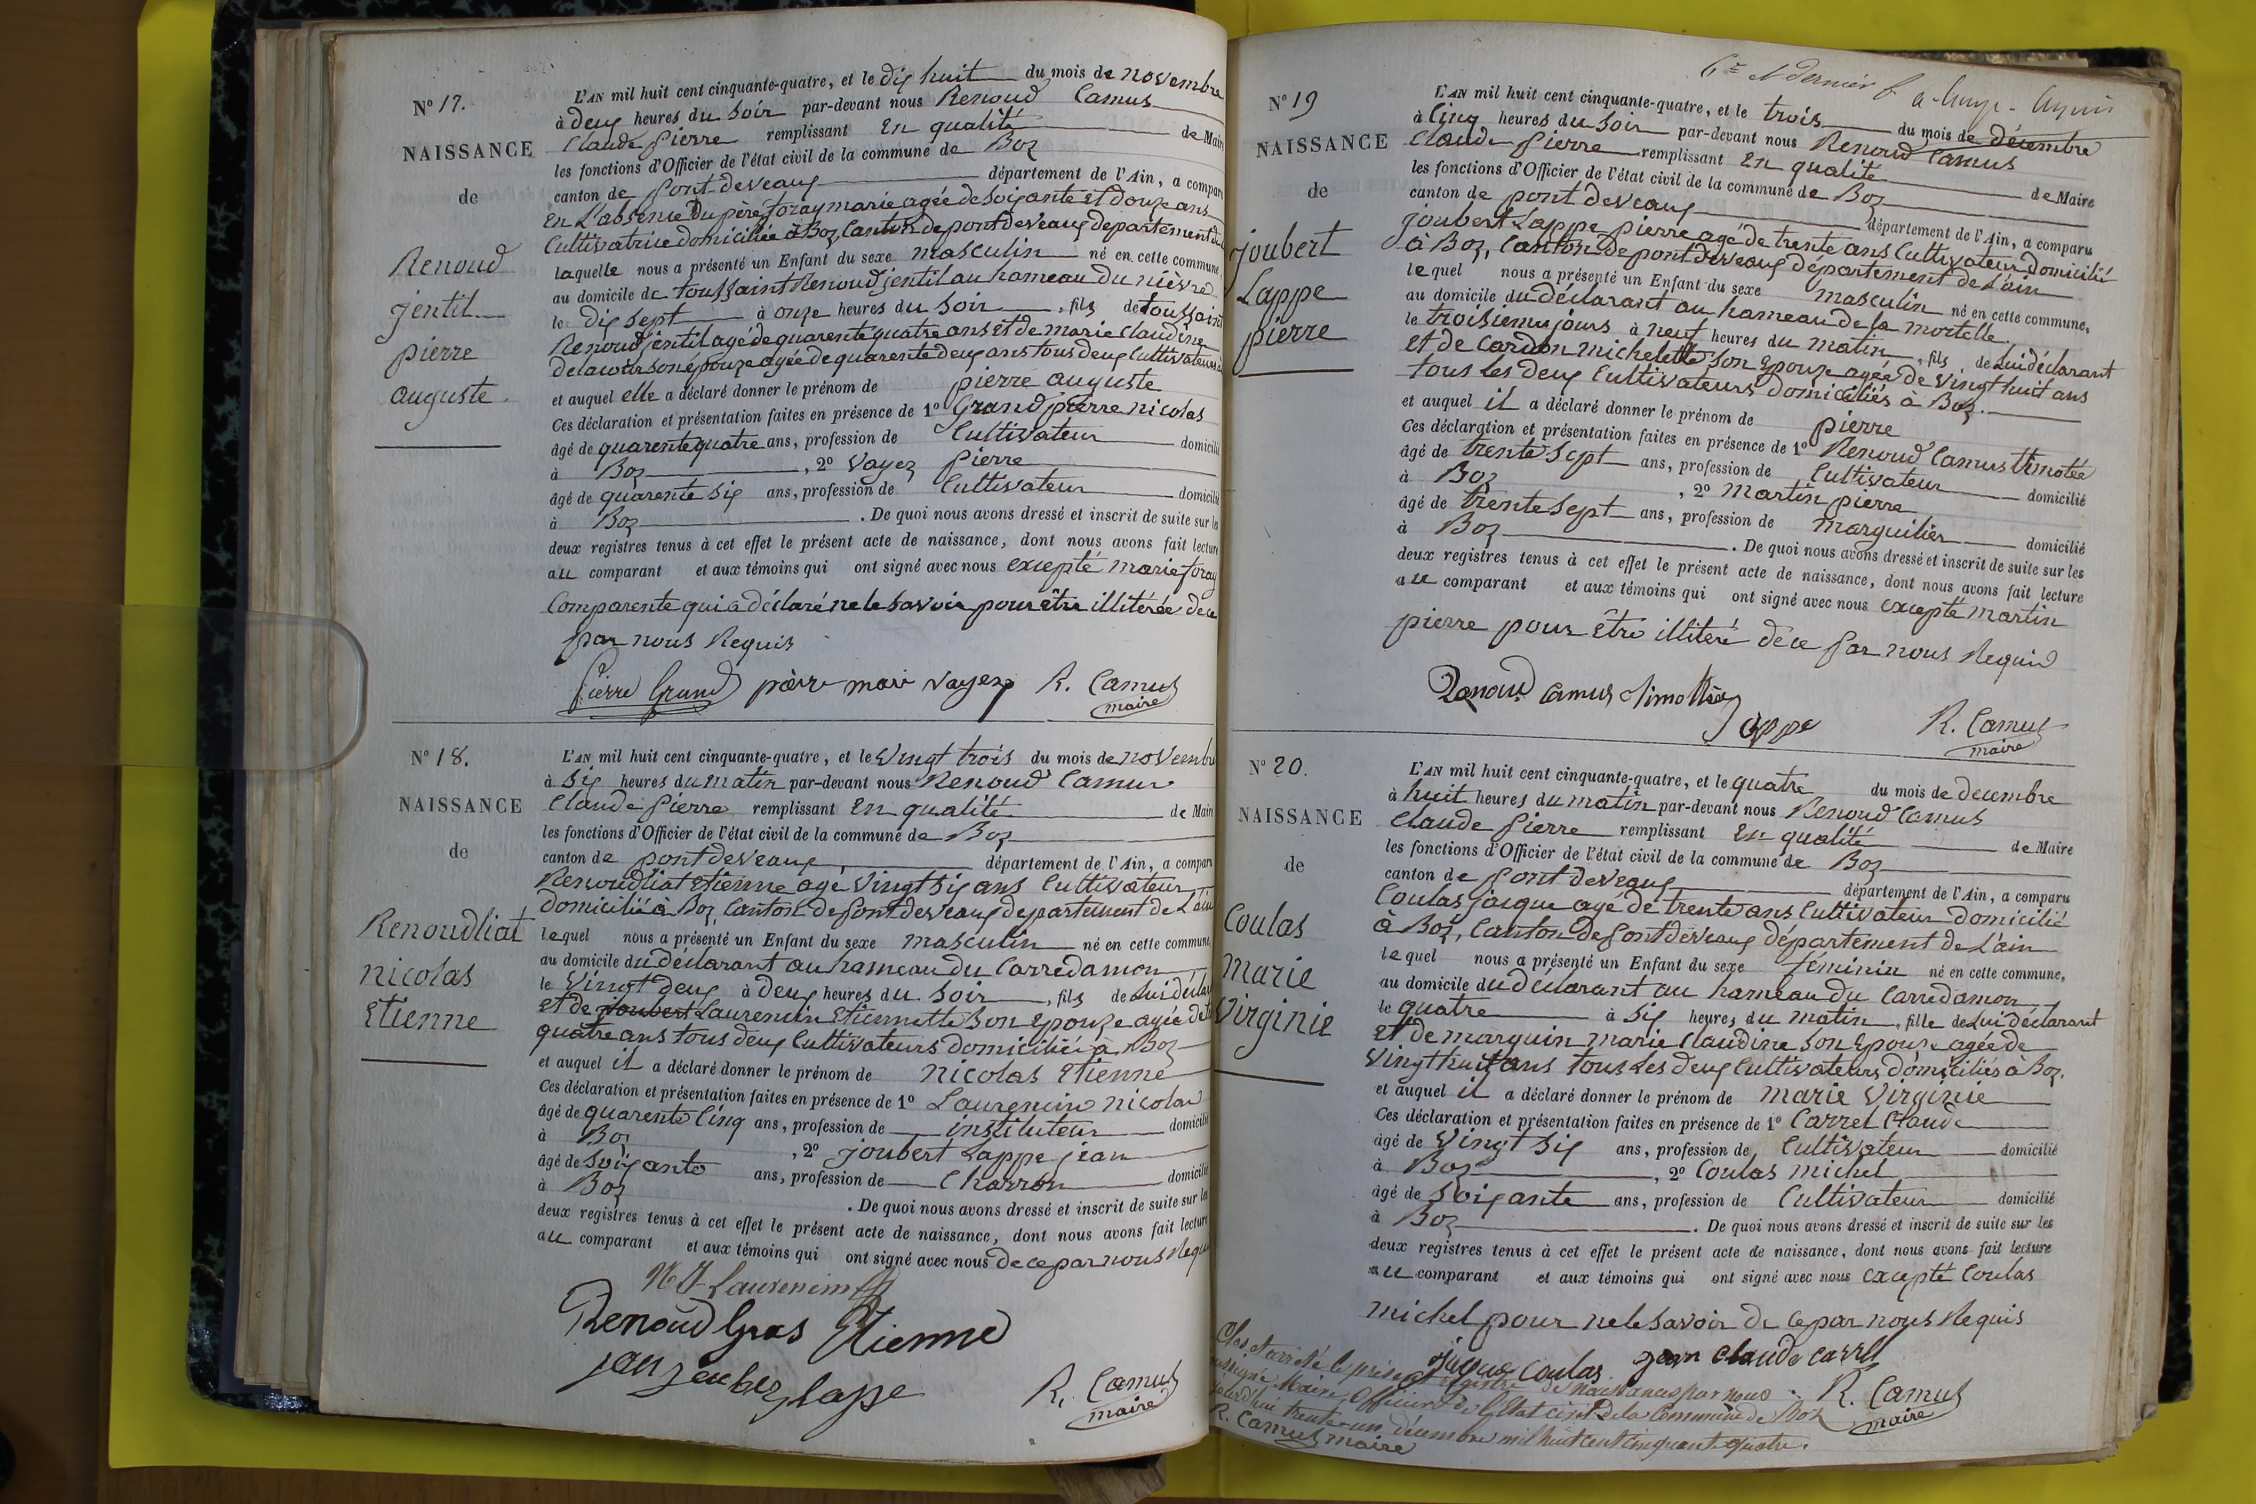 N° 17.
NAISSANCE
de
Renoud
jentil
pierre
auguste.
L'AN mil huit cent cinquante-quatre, et le dix huit du mois de novembre
à deux heures du Soir par-devant nous Renoud Camus
Claude pierre remplissant En qualité de Maire
les fonctions d'Officier de l'état civil de la commune de Boz
canton de pont deveaux département de l'Ain, a comparu
En L'absence Du père foray marie agée de Soixante Et douze ans
Cultivatrice domiciliée à Boz, Canton de pontdeveaux département de
laquelle nous a présenté un Enfant du sexe masculin né en cette commune,
au domicile de toussaint Renoud jentil au hameau Du nièvre
le dix sept à onze heures du Soir, fils de toussaint
Renoud jentil agé de quarente quatre ans Et de marie Claudine
Son épouze agée de quarente deux ans tous deux Cultivateurs
et auquel elle a déclaré donner le prénom de pierre auguste
Ces déclaration et présentation faites en présence de 1° Grand pierre nicolas
âgé de quarente quatre ans, profession de Cultivateur domicilié
à Boz, 2° Vayez pierre
âgé de quarente six ans, profession de Cultivateur domicilié
à Boz. De quoi nous avons dressé et inscrit de suite sur les
deux registres tenus à cet effet le présent acte de naissance, dont nous avons fait lecture
au comparant et aux témoins qui ont signé avec nous excepté marie foray
Comparente qui a déclaré ne le Savoir pour être illitérée de ce
par nous Requis
Pierre Grand pierre mari vayez R. Camus
maire
N° 18.
NAISSANCE
de
Renoudliat
nicolas
Etienne
L'AN mil huit cent cinquante-quatre, et le Vingt trois du mois de novembre
à six heures du matin par-devant nous Renoud Camus
Claude pierre remplissant En qualité de Maire
les fonctions d'Officier de l'état civil de la commune de Boz
canton de pontdeveaux département de l'Ain, a comparu
Renoudliat Etienne agé Vingt six ans Cultivateur
domicilié à Boz Canton de pont deveaux departement de L'ain
lequel nous a présenté un Enfant du sexe masculin né en cette commune,
au domicile du déclarant au hameau du Carredamon
le Vingt deux à deux heures du Soir, fils de Lui déclar
Et de joubert Laurencin Etiennette Son Epouze agée de
quatre ans tous deux Cultivateurs domiciliés à Boz
et auquel il a déclaré donner le prénom de nicolas Etienne
Ces déclaration et présentation faites en présence de 1° Laurencin nicolas
âgé de quarente cinq ans, profession de instituteur domicilié
à Boz, 2° joubert Lappe jean
âgé de Soixante ans, profession de Charron domicilié
à Boz. De quoi nous avons dressé et inscrit de suite sur les
deux registres tenus à cet effet le présent acte de naissance, dont nous avons fait lecture
au comparant et aux témoins qui ont signé avec nous de ce par nous Requi
Laurencin
Renoud Gras Etienne
jan lappe
R. Camus
maire
N° 19
NAISSANCE
de
joubert
Lappe
pierre
6e et dernier f
L'AN mil huit cent cinquante-quatre, et le trois du mois de décembre
à Cinq heures du Soir par-devant nous Renoud Camus
Claude pierre remplissant En qualité de Maire
les fonctions d'Officier de l'état civil de la commune de Boz
canton de pont deveaux département de l'Ain, a comparu
joubert Lappe pierre agé de trente ans Cultivateur domicilié
à Boz, Canton de pontdeveaux département de L'ain
lequel nous a présenté un Enfant du sexe masculin né en cette commune,
au domicile du déclarant au hameau de la mortelle
le troisieme jours à neuf heures du matin, fils de Lui déclarant
Et de Cardon michelette Son Epouze agée de Vingt huit ans
tous Les deux Cultivateurs domiciliés à Boz.
et auquel il a déclaré donner le prénom de pierre
Ces déclaration et présentation faites en présence de 1° Renoud Camus timotée
âgé de trente Sept ans, profession de Cultivateur domicilié
à Boz, 2° martin pierre
âgé de trente Sept ans, profession de marguilier domicilié
à Boz. De quoi nous avons dressé et inscrit de suite sur les
deux registres tenus à cet effet le présent acte de naissance, dont nous avons fait lecture
au comparant et aux témoins qui ont signé avec nous excepté martin
pierre pour Etre illitéré de ce par nous Requis
Renoud Camus timothée
lappe R. Camus
maire
N° 20.
NAISSANCE
de
Coulas
marie
Virginie
L'AN mil huit cent cinquante-quatre, et le quatre du mois de decembre
à huit heures du matin par-devant nous Renoud Camus
Claude pierre remplissant En qualité de Maire
les fonctions d'Officier de l'état civil de la commune de Boz
canton de pont deveaux département de l'Ain, a comparu
Coulas jacque agé de trente ans Cultivateur domicilié
à Boz, Canton de pontdeveaux département de L'ain
lequel nous a présenté un Enfant du sexe féminin né en cette commune,
au domicile du déclarant au hameau du Carredamon
le quatre à six heures du matin, fille de Lui déclarant
Et de marguin marie Claudine Son Epouze agée de
Vingt huit ans tous Les deux Cultivateurs domiciliés à Boz.
et auquel il a déclaré donner le prénom de marie Virginie
Ces déclaration et présentation faites en présence de 1° Carrel Claude
âgé de Vingt six ans, profession de Cultivateur domicilié
à Boz, 2° Coulas michel
âgé de Soixante ans, profession de Cultivateur domicilié
à Boz. De quoi nous avons dressé et inscrit de suite sur les
deux registres tenus à cet effet le présent acte de naissance, dont nous avons fait lecture
au comparant et aux témoins qui ont signé avec nous excepté Coulas
michel pour ne le Savoir de ce par nous Requis
jaque Coulas jean claude carrel
R. Camus
maire
Clos et arrêté le présent registre de Naissances par nous
soussigné Maire, Officier de l'Etat civil de la Commune de Boz
aujourd'hui trente un décembre mil huit cent cinquante quatre.
R. Camus maire